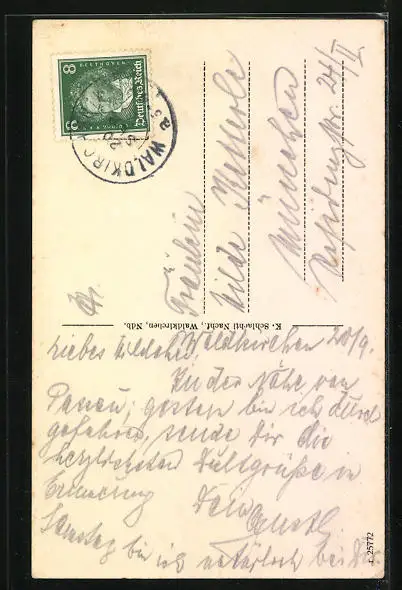 8
BEETHOVEN
Deutsches Reich
8
WALDKIRCH
Fräulein
Hilde
München
24/II
K. Schlachtl Nachf., Waldkirchen, Ndb.
Liebes Hildchen, Waldkirchen 20/9.
In der Nähe von
Passau, gestern bin ich durch
gefahren, sende Dir die
herzlichsten Grüße in
Erinnerung Dein
Samstag bin ich natürlich bei Dir.
25772